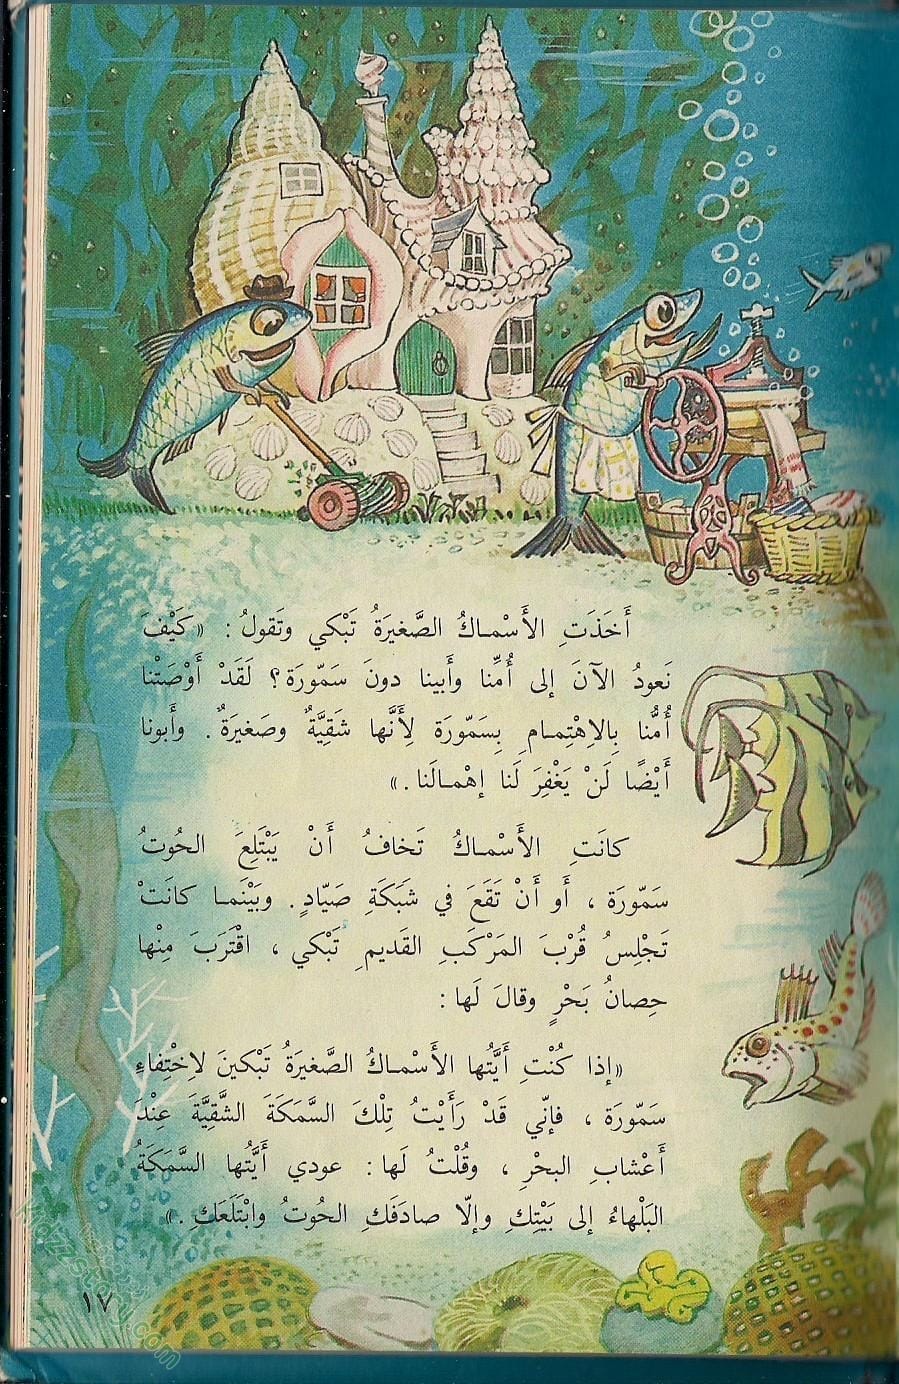 أَخَذَتِ الأَسْماكُ الصَّغيرَةُ تَبْكي وتَقولُ : «كَيْفَ
نَعودُ الآنَ إلى أُمِّنا وأَبينا دونَ سَمّورَة؟ لَقَدْ أَوْصَتْنا
أُمُّنا بِالاِهْتِمامِ بِسَمّورَة لِأَنَّها شَقِيَّةٌ وصَغيرَةٌ . وأَبونا
أَيْضًا لَنْ يَغْفِرَ لَنا إهْمالَنا .»
كانَتِ الأَسْماكُ تَخافُ أَنْ يَبْتَلِعَ الحُوتُ
سَمّورَة ، أَو أَنْ تَقَعَ في شَبَكَةِ صَيّادٍ . وبَيْنَما كانَتْ
تَجْلِسُ قُرْبَ المَرْكَبِ القَديمِ تَبْكي ، اقْتَرَبَ مِنْها
حِصانُ بَحْرٍ وقالَ لَها :
«إذا كُنْتِ أَيَّتُها الأَسْماكُ الصَّغيرَةُ تَبْكينَ لاِخْتِفاءِ
سَمّورَة ، فإنّي قَدْ رَأَيْتُ تِلْكَ السَّمَكَةَ الشَّقِيَّةَ عِنْدَ
أَعْشابِ البحْرِ ، وقُلْتُ لَها : عودي أَيَّتُها السَّمَكَةُ
البَلْهاءُ إلى بَيْتِكِ وإلّا صادَفَكِ الحُوتُ وابْتَلَعَكِ .»
١٧